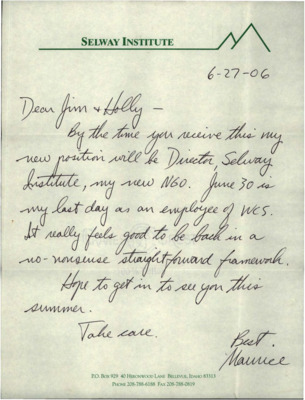 SELWAY INSTITUTE
6-27-06
Dear Jim & Holly –
By the time you receive this my
new position will be Director, Selway
Institute, my new NGO. June 30 is
my last day as an employee of WCS.
It really feels good to be back in a
no-nonsense straightforward framework.
Hope to get in to see you this
summer.
Take care.
Best.
Maurice
P.O. BOX 929 40 HEROWOOD LANE BELLEVUE, IDAHO 83313
PHONE 228-788-6188 FAX 228-788-2819